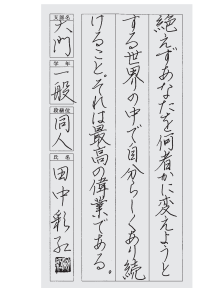 絶えずあなたを何者かに変えようと
する世界の中で自分らしくあり続
けること。それは最高の偉業である。
支部名
大門
学年
一般
段級位
同人
氏名
田中彩